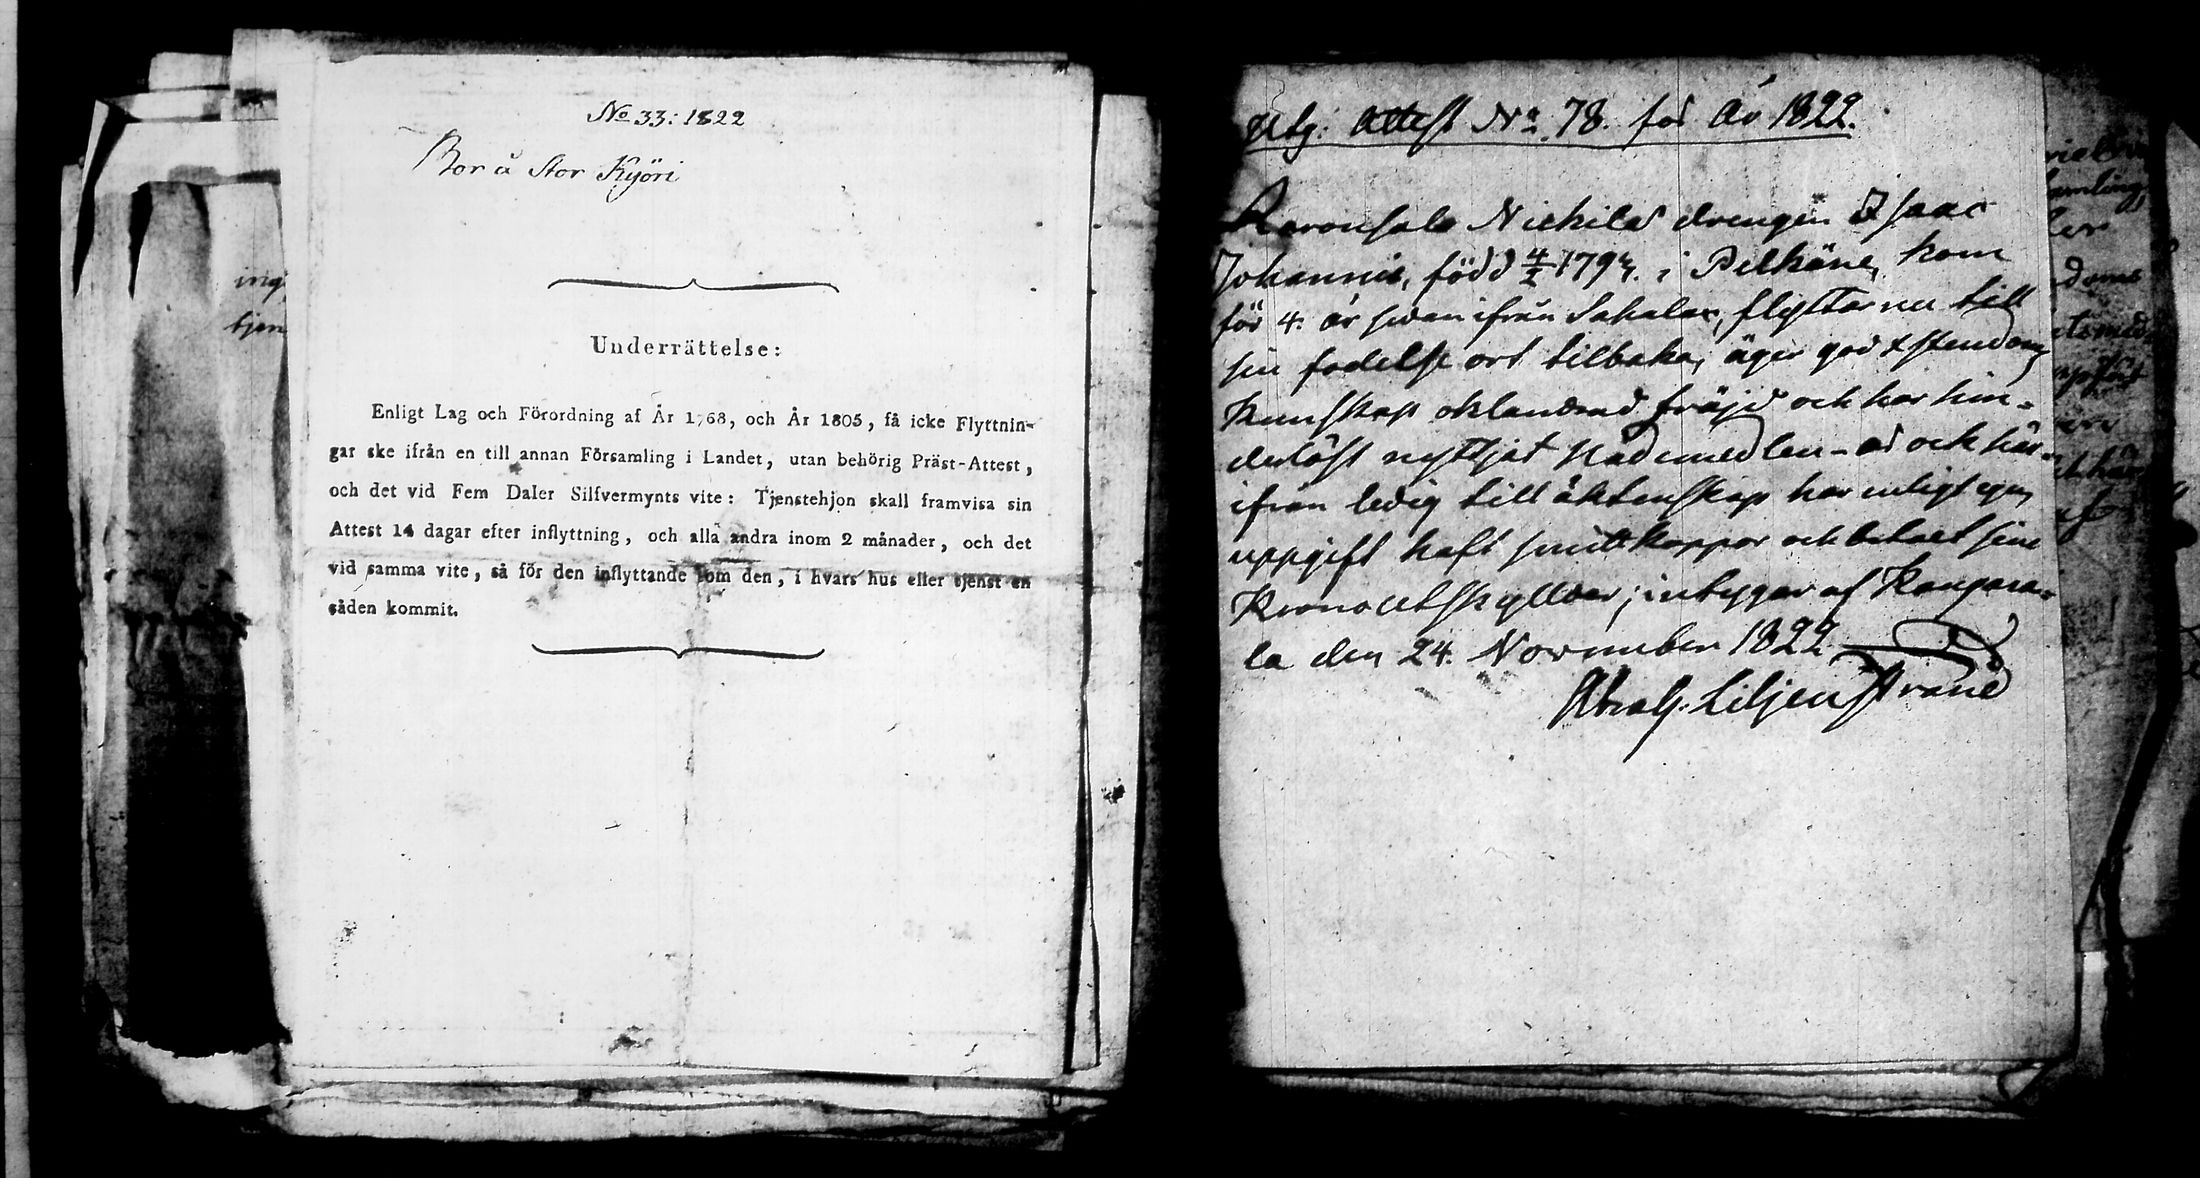 No 33: 1822
Bor å Stor Kyöri
Underrättelse:
Enligt Lag och Förordning af År 1768, och År 1805, få icke Flyttnin-
gar ske ifrån en till annan Församling i Landet, utan behörig Präst-Attest,
och det vid Fem Daler Silfvermynts vite: Tjenstehjon skall framvisa sin
Attest 14 dagar efter inflyttning, och alla andra inom 2 månader, och det
vid samma vite, så för den inflyttande som den, i hvars hus eller tjenst en
såden kommit.
ing
tjen
Utg: Attest No 78. för År 1822.
Nickilä drengen Isaac
Johannis, född 4/1 179 i Pelkäne, kom
för 4. år sedan ifrån Sahalax, flyttar nu till
sin fodelse ort tilbaka, äger god Christendoms
Kunskap oklandrad fräjd och har hin=
derlöst nyttjat Nådemedlen - är ock här=
ifrån ledig till äktenskap har enligt egen
uppgift haft smittkoppor och betalt sine
Kronoutskyllder; intygar af Kangasa=
la den 24. November 1822
Abrah. Liljenstrand